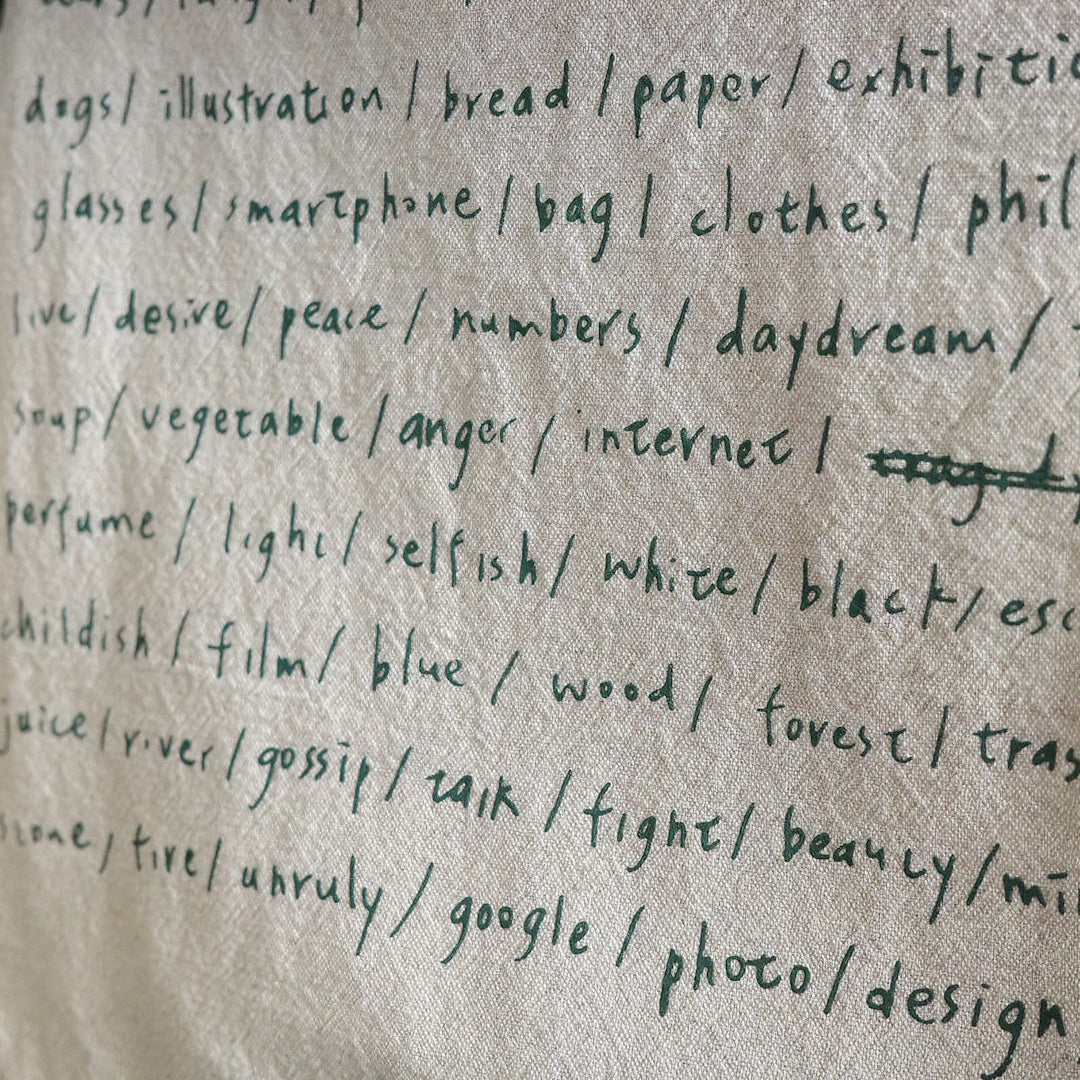 dogs / illustration / bread / paper / exhibitio
glasses / smartphone / bag / clothes / phil
live / desire / peace / numbers / daydream /
soup / vegetable / anger / internet /
perfume / light / selfish / white / black / esc
childish / film / blue / wood / forest / tras
juice / river / gossip / talk / fight / beauty / mil
stone / fire / unruly / google / photo / design